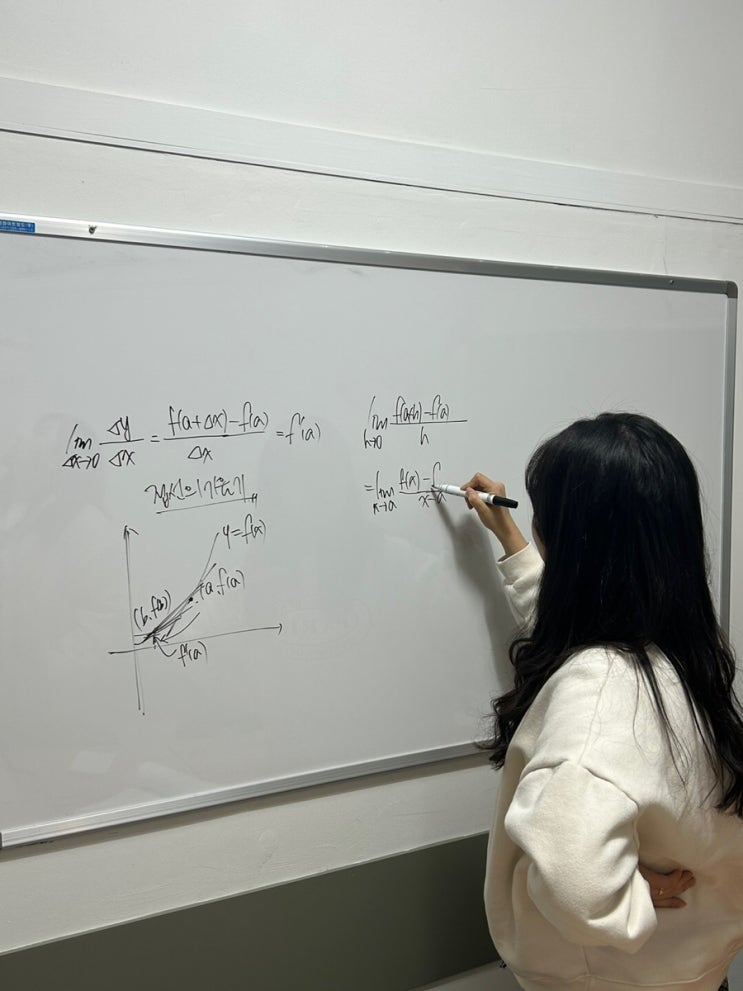 lim Δx→0 Δy/Δx = f(a+Δx)-f(a)/Δx = f'(a)
접선의 기울기
y=f(x)
(a, f(a))
f'(a)
lim h→0 f(a+h)-f(a)/h
= lim x→a f(x)-f/x-a